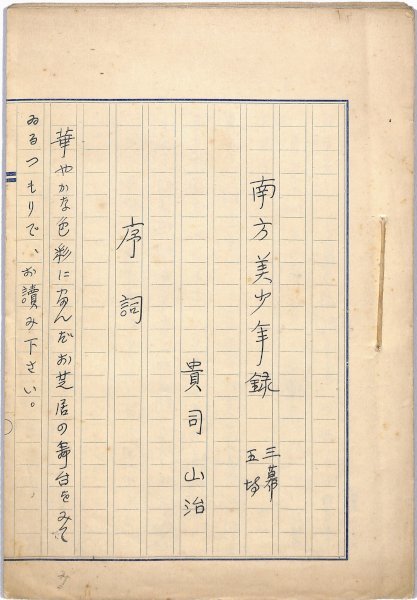 南方美少年録
三幕
五場
貴司山治
序詞
華やかな色彩に富んだお芝居の舞台をみて
ゐるつもりで、お讀み下さい。